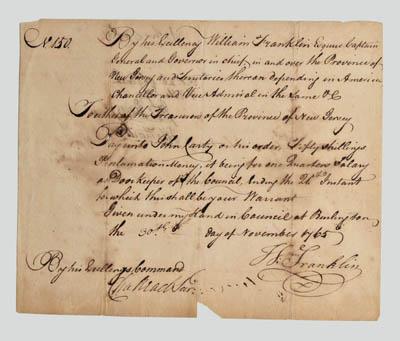 No. 150.
By his Excellency William Franklin Esquire Captain
General and Governor in chief, in and over the Province of
New Jersey and Territories thereon depending in America
Chancellor and Vice Admiral in the Same &c
To the Treasurer of the Province of New Jersey
Pay unto John Carty or his order, Fifty shillings
Proclamation Money, it being for one Quarters Salary
as Doorkeeper of the Council, Ending the 26th Instant
for which this shall be your Warrant
Given under my Hand in Council at Burlington
the 30th day of November 1765
Wm Franklin
By his Excellency's Command